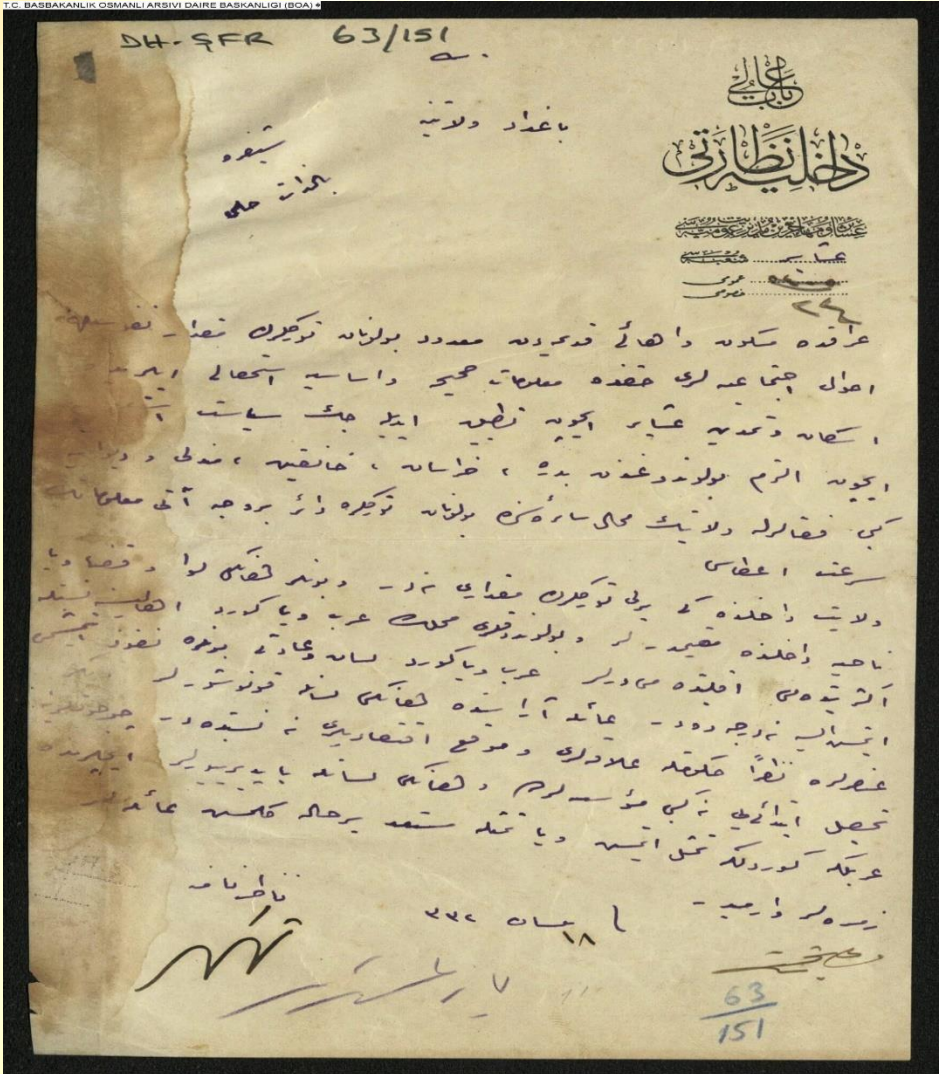 T.C. BASBAKANLIK OSMANLI ARSIVI DAIRE BASKANLIGI (BOA)
DH-ŞFR 63/151
باب عالی
داخلیه نظارتی
عشائر و مهاجرین مدیریت عمومیه سی
عشایر شعبه سی
عمومی
خصوصی
بغداد ولایتنه
شیفره
عراقده مسکون و اهالئ قدیمه دن معدود بولونان تورکلرك مقدار نفوسیله
احوال اجتماعیه لری حقنده معلومات صحیحه و اساسیه استحصالی
اسكان و تمدین عشایر ایچون تطبیق ایدیله جك سیاست
ایچون الزم بولوندوغندن بدره ، خراسان ، خانقین ، مندلی و
كبی قضالرله ولایتك محال سائره سنده بولونان تورکلره دائر بروجه آتی معلوماتك
سرعت اعطاسی
ولایت داخلنده كی یرلی تورکلرك مقداری نه در و بونلر هانكی لوا و قضا ویا
ناحیه داخلنده مقیمدرلر و بولوندوقلری محللرده عرب ویا كورد اهالیسنه نسبتله
اكثریتده می اقلیتده می درلر عرب ویا كورد لسان و عاداتی بونلره نفوذ ایتمش
ایتمش ایسه نه درجه ده در عائله آراسنده هانكی لسانله قونوشورلر
عنصرلره نظراً حكومتله علاقه لری و موقع اقتصادیلری نه نسبتده در
تحصیل ابتدائی یی نه كبی مؤسسه لرده و هانكی لسانله یاپدیرییورلر ایچلرنده
عربلكه كوردلكه تمثل ایتمش ویا تمثله مستعد برحاله كلمش عائله لر
زمره لر وارمیدر
١٨ نیسان ٣٣٢
ناظر نامنه
63
151